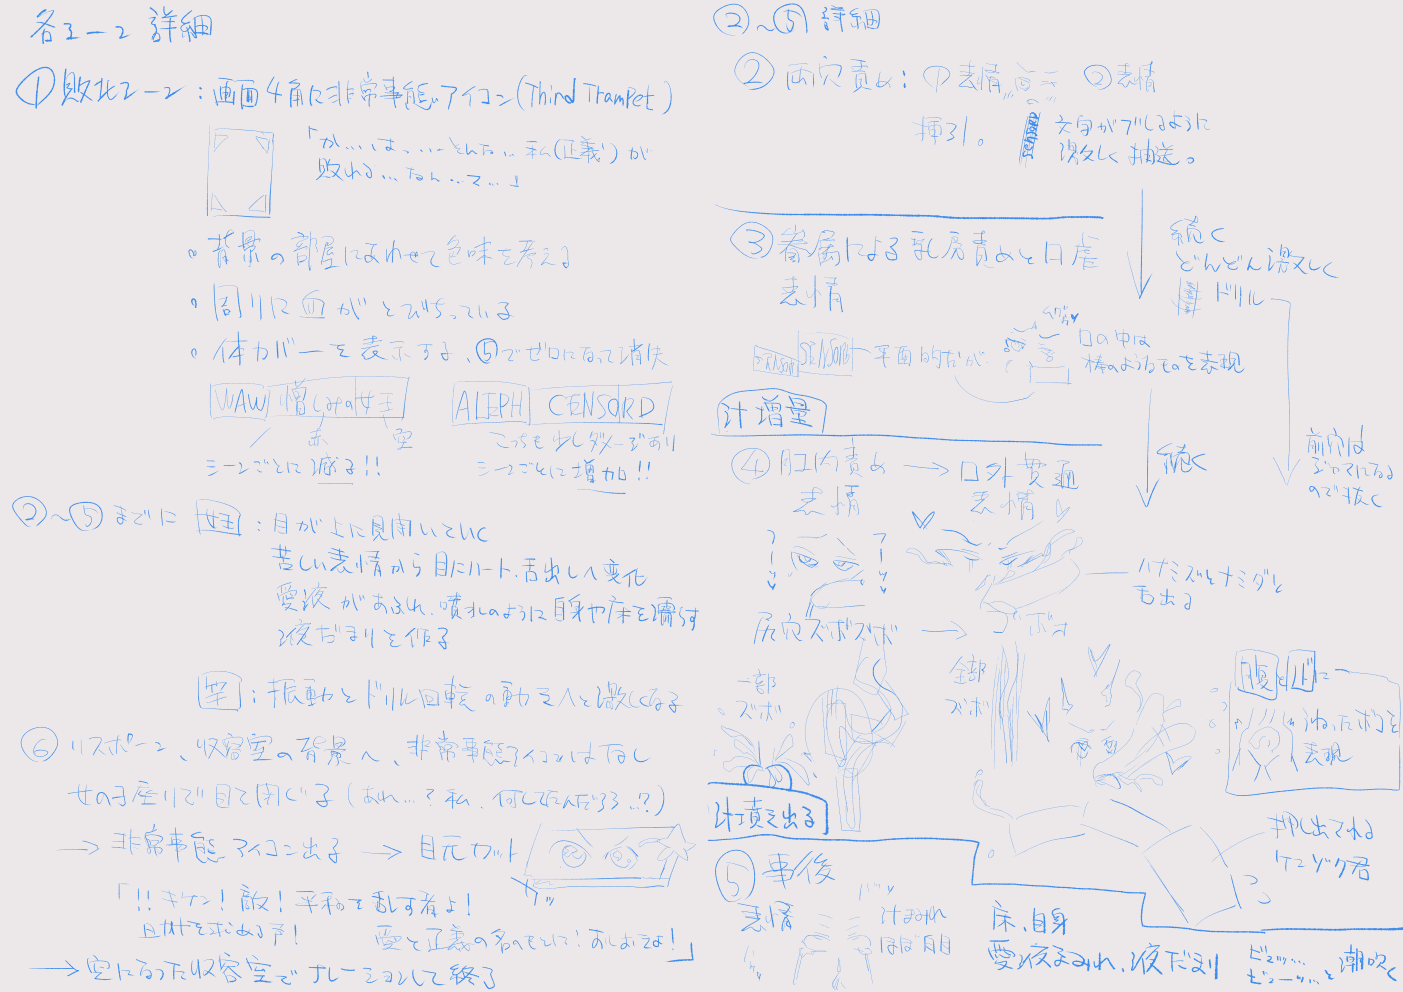 各シーン 詳細
①敗北シーン：画面4角に非常事態アイコン(Third Trampet)
「か…は……そんな… 私(正義)が
敗れる…なん…て…」
・背景の部屋にあわせて色味を考える
・周りに血がとびちっている
・体力バーを表示する、⑤でゼロになって消失
WAW 憎しみの女王
赤
空
シーンごとに減る!!
ALEPH CENSORD
こっちも少しダメージあり
シーンごとに増加!!
②〜⑤までに 女王：目が上に見開いていく
苦しい表情から目にハート、舌出しへ変化
愛液があふれ、噴水のように自身や床を濡らす
液だまりを作る
：振動とドリル回転の動きへと激しくなる
⑥ リスポーン、収容室の背景へ、非常事態アイコンはなし
女の子座りで目て閉じる(あれ…?私、何してたんだろう…?)
→非常事態アイコン出る → 目元カット
カッ
「!!キサン!敵!平和を乱す者よ!
愛と正義の名のもとに!
→空になった収容室でナレーションして終了
②〜⑤ 詳細
② 両穴責め：①表情 ②表情
挿入。
文字がブレるように
激しく抽送。
続く
どんどん激しく
ドリル
③ 眷属による乳房責めと口虐
表情
CENSORD
平面的だが
口の中は
棒のようなものを表現
汁増量
続く
前穴は
ので抜く
④ 肛内責め → 口外貫通
表情 表情
フーッ フーッ
ハナミズとナミダと
も出る
尻穴ズボズボ →
一部
ズボ
全部
ズボ
腹と
うねったボコを
表現
汁噴き出る
押し出てれる
ケンゾク君
⑤ 事後
表情
汁まみれ
ほぼ白目
床、自身
愛液まみれ、液だまり
と潮吹く